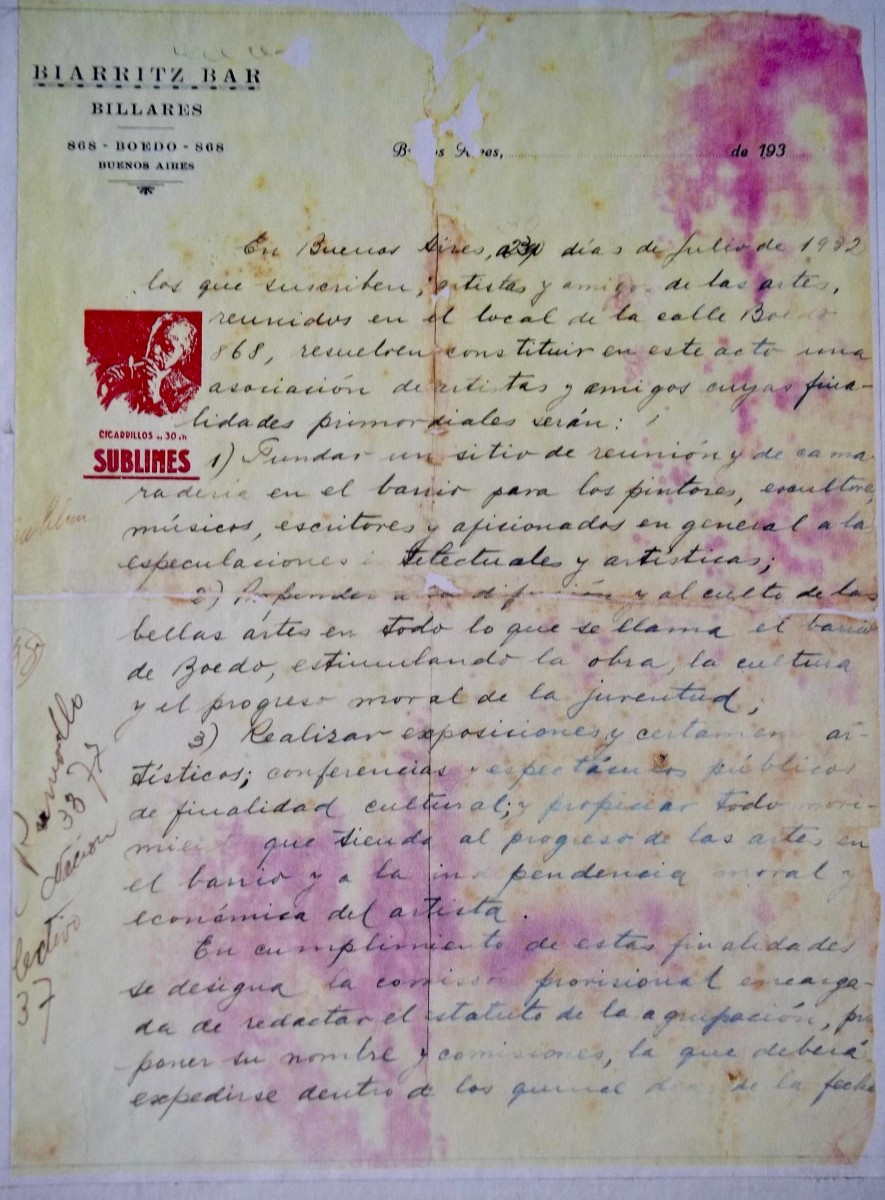 BIARRITZ BAR
BILLARES
868 - BOEDO - 868
BUENOS AIRES
de 193
En Buenos Aires, a 23 días de Julio de 1932
los que suscriben, artistas y amigos de las artes,
reunidos en el local de la calle Boedo
868, resuelven constituir en este acto una
asociación de artistas y amigos cuyas fina-
lidades primordiales serán:
CIGARRILLOS de 30 cts
SUBLIMES
1) Fundar un sitio de reunión y de cama
radería en el barrio para los pintores, escultores,
músicos, escritores y aficionados en general a las
especulaciones intelectuales y artísticas;
2) Propender a la difusión y al culto de las
bellas ártes en todo lo que se llama el barrio
de Boedo, estimulando la obra, la cultura
y el progreso moral de la juventud;
3) Realizar exposiciones y certamen ar-
tísticos; conferencias y espectáculos públicos
de finalidad cultural; y propiciar todo movi-
mient que tienda al progreso de las artes en
el barrio y a la independencia moral y
económica del artista.
En cumplimiento de estas finalidades
se designa la comisión provisional encarga-
da de redactar el estatuto de la agrupación, pro
poner su nombre y comisiones, la que deberá
expedirse dentro de los quince días de la fecha
38
33 77
37